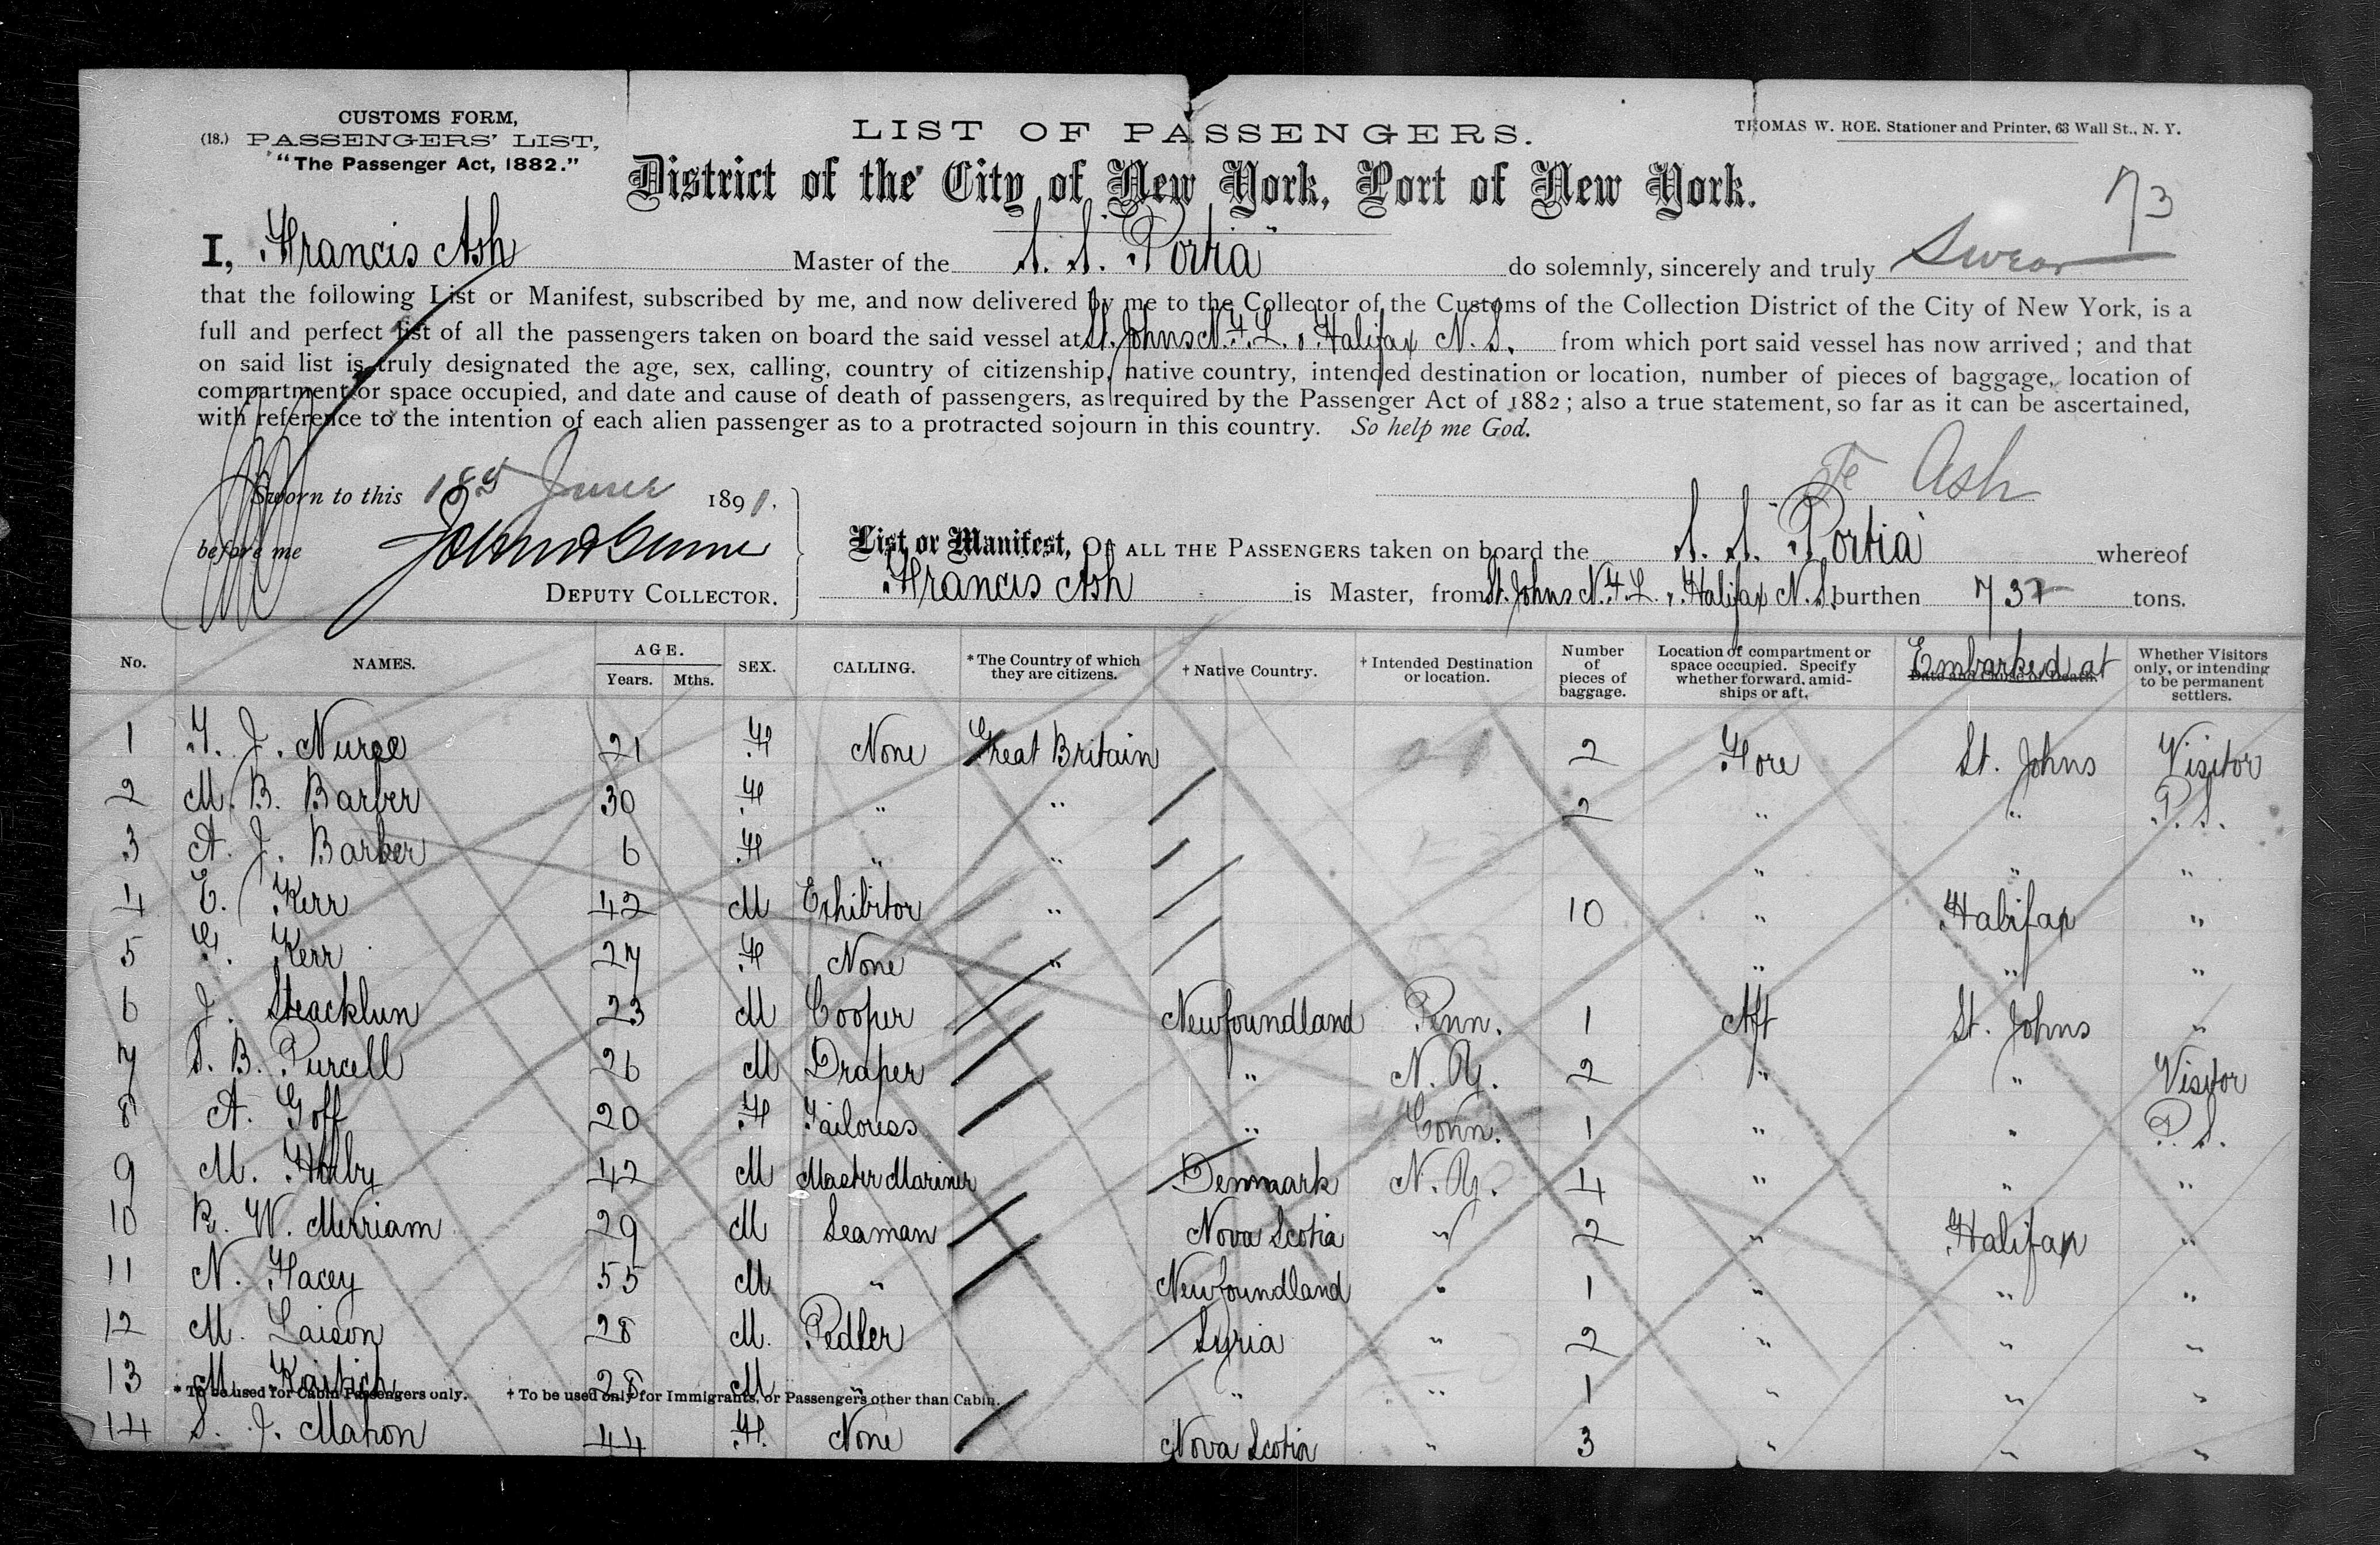 CUSTOMS FORM,
(18.) PASSENGERS' LIST,
"The Passenger Act, 1882."
LIST OF PASSENGERS.
THOMAS W. ROE. Stationer and Printer, 63 Wall St., N. Y.
District of the City of New York, Port of New York.
73
I, Francis Ash Master of the S. S. "Portia" do solemnly, sincerely and truly Swear
that the following List or Manifest, subscribed by me, and now delivered by me to the Collector of the Customs of the Collection District of the City of New York, is a
full and perfect list of all the passengers taken on board the said vessel at St. Johns N.F.L. , Halifax N.S. from which port said vessel has now arrived; and that
on said list is truly designated the age, sex, calling, country of citizenship, native country, intended destination or location, number of pieces of baggage, location of
compartment or space occupied, and date and cause of death of passengers, as required by the Passenger Act of 1882; also a true statement, so far as it can be ascertained,
with reference to the intention of each alien passenger as to a protracted sojourn in this country. So help me God.
Sworn to this June 1891.
Ash
before me
DEPUTY COLLECTOR.
List or Manifest, OF ALL THE PASSENGERS taken on board the S. S. "Portia" whereof
Francis Ash is Master, from St. Johns N.F.L. , Halifax N.S. burthen tons.
No. NAMES. AGE. Years. Mths. SEX. CALLING. *The Country of which they are citizens. † Native Country. † Intended Destination or location. Number of pieces of baggage. Location of compartment or space occupied. Specify whether forward, amidships or aft. Embarked at Date and Cause of Death. Whether Visitors only, or intending to be permanent settlers.
1 J. Nurse 21 F None Great Britain 2 Fore St. Johns Visitor
2 M. B. Barber 30 F " " 2 " " P. S.
3 A. J. Barker 6 F " " " " "
4 E. Kerr 42 M Exhibitor " 10 " Halifax "
5 Kerr 27 F None " " " "
6 J. 23 M Cooper Newfoundland Penn. 1 Aft St. Johns "
7 S. B. Purcell 26 M Draper " N. Y. 2 " " Visitor
8 A. Goff 20 F Tailoress " Conn. 1 " " P. S.
9 M. 42 M Master Mariner Denmark N. Y. 4 " " "
10 R. W. Merriam 29 M Seaman Nova Scotia " 2 " Halifax "
11 N. Facey 55 M " Newfoundland " 1 " " "
12 M. Laison 28 M. Pedler Syria " 2 " " "
13 M. 28 M " " " 1 " " "
* To be used for Cabin Passengers only. † To be used only for Immigrants, or Passengers other than Cabin.
14 S. J. Mahon 44 F. None Nova Scotia " 3 " " "